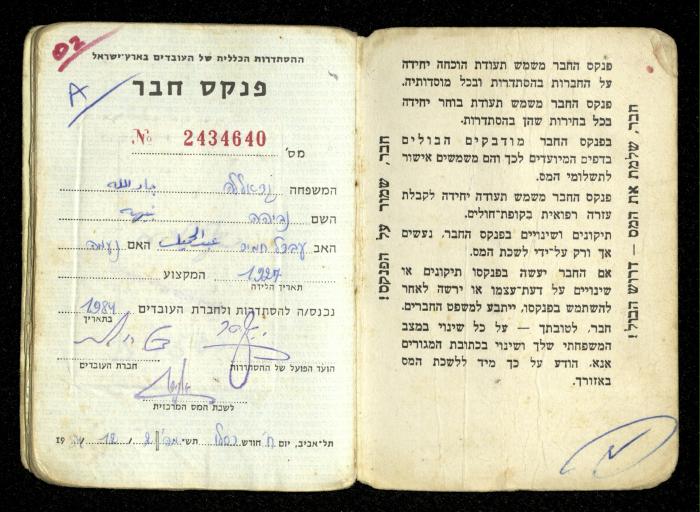 02
A
ההסתדרות הכללית של העובדים בארץ-ישראל
פנקס חבר
מס' № 2434640
המשפחה
השם נביהה نبيهة
האב עבדל חמיד عبد الحميد האם נעמה
1927 המקצוע
תאריך הלידה
נכנס/ה להסתדרות ולחברת העובדים 1984
בתאריך
הועד הפועל של ההסתדרות חברת העובדים
לשכת המס המרכזית
תל-אביב, יום ח' חודש כסלו תש' 2/12 19
פנקס החבר משמש תעודת הוכחה יחידה
על החברות בהסתדרות ובכל מוסדותיה.
פנקס החבר משמש תעודת בוחר יחידה
בכל בחירות שהן בהסתדרות.
בפנקס החבר מודבקים הבולים
בדפים המיועדים לכך והם משמשים אישור
לתשלומי המס.
פנקס החבר משמש תעודה יחידה לקבלת
עזרה רפואית בקופת-חולים.
תיקונים ושינויים בפנקס החבר, נעשים
אך ורק על-ידי לשכת המס.
אם החבר יעשה בפנקסו תיקונים או
שינויים על דעת-עצמו או ירשה לאחר
להשתמש בפנקסו, ייתבע למשפט החברים.
חבר, לטובתך — על כל שינוי במצב
המשפחתי שלך ושינוי בכתובת המגורים
אנא, הודע על כך מיד ללשכת המס
באזורך.
חבר, שמור על הפנקס!
חבר, שלמת את המס — דרוש הבול!